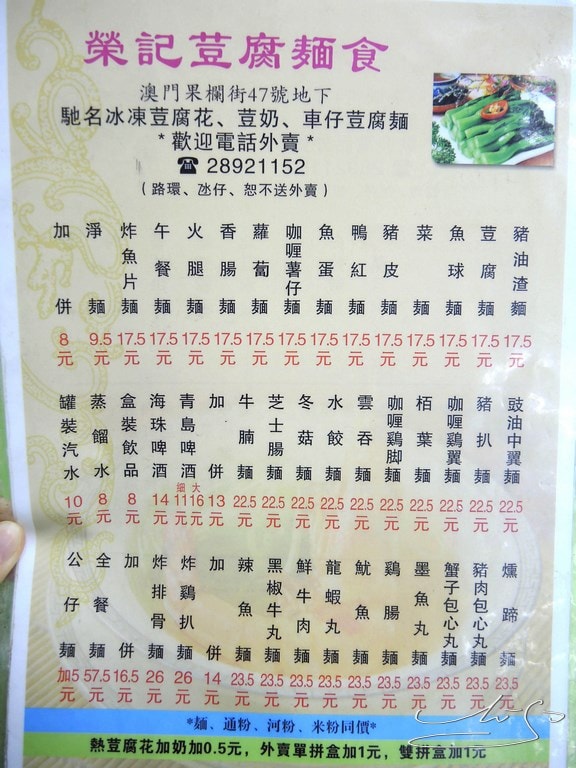 榮記荳腐麵食
澳門果欄街47號地下
馳名冰凍荳腐花、荳奶、車仔荳腐麵
*歡迎電話外賣*
☎ 28921152
(路環、氹仔、恕不送外賣)
豬油渣麵 17.5元
荳腐麵 17.5元
魚球麵 17.5元
菜麵 17.5元
豬皮麵 17.5元
鴨紅麵 17.5元
魚蛋麵 17.5元
咖喱薯仔麵 17.5元
蘿蔔麵 17.5元
香腸麵 17.5元
火腿麵 17.5元
午餐麵 17.5元
炸魚片麵 17.5元
淨麵 9.5元
加併 8元
豉油中翼麵 22.5元
豬扒麵 22.5元
咖喱鷄翼麵 22.5元
栢葉麵 22.5元
咖喱鷄脚麵 22.5元
雲吞麵 22.5元
水餃麵 22.5元
冬菇麵 22.5元
芝士腸麵 22.5元
牛腩麵 22.5元
加併 13元
青島啤酒 細11元 大16元
海珠啤酒 14元
盒裝飲品 8元
蒸餾水 8元
罐裝汽水 10元
燻蹄麵 23.5元
豬肉包心丸麵 23.5元
蟹子包心丸麵 23.5元
墨魚丸麵 23.5元
鷄腸麵 23.5元
魷魚麵 23.5元
龍蝦丸麵 23.5元
鮮牛肉麵 23.5元
黑椒牛丸麵 23.5元
辣魚麵 23.5元
加併 14元
炸鷄扒麵 26元
炸排骨麵 26元
加併 16.5元
全餐麵 57.5元
公仔麵 加5元
*麵、通粉、河粉、米粉同價*
熱荳腐花加奶加0.5元，外賣單拼盒加1元，雙拼盒加1元